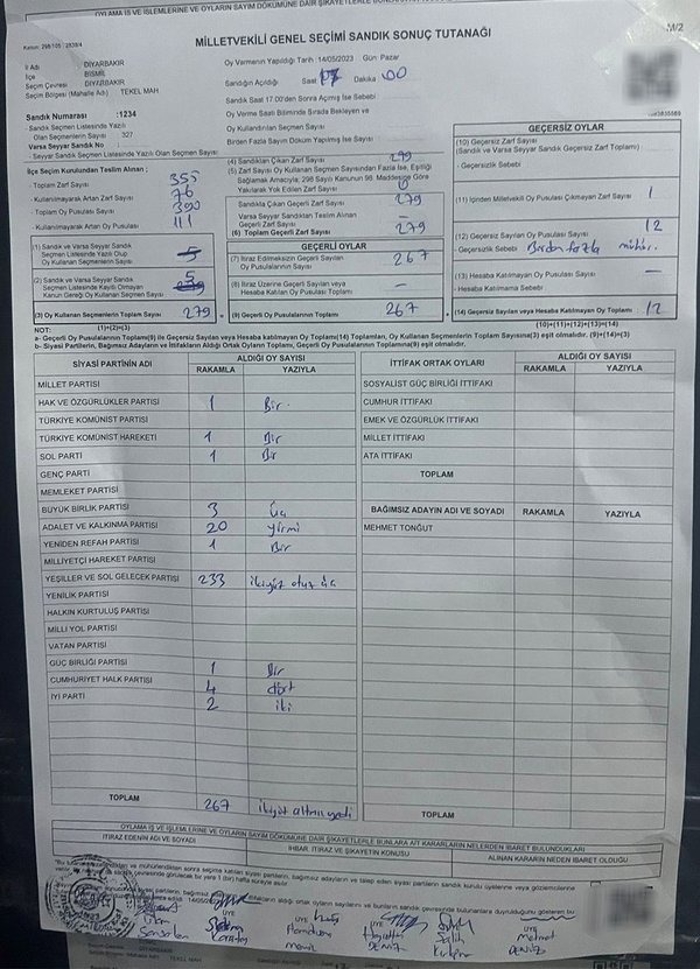 OYLAMA İŞ VE İŞLEMLERİNE VE OYLARIN SAYIM DÖKÜMÜNE DAİR ŞİKAYETLERLE
M/2
MİLLETVEKİLİ GENEL SEÇİMİ SANDIK SONUÇ TUTANAĞI
İl Adı DİYARBAKIR
İlçe BİSMİL
Seçim Çevresi DİYARBAKIR
Seçim Bölgesi (Mahalle Adı) TEKEL MAH.
Oy Vermenin Yapıldığı Tarih :14/05/2023 Gün: Pazar
Sandığın Açıldığı Saat 17 Dakika 00
Sandık Saat 17.00'den Sonra Açılmış İse Sebebi
Oy Verme Saati Bitiminde Sırada Bekleyen ve
Oy Kullandırılan Seçmen Sayısı
Birden Fazla Sayım Dökum Yapılmış İse Sayısı
Sandık Numarası :1234
- Sandık Seçmen Listesinde Yazılı
Olan Seçmenlerin Sayısı 327
Varsa Seyyar Sandık No
- Seyyar Sandık Seçmen Listesinde Yazılı Olan Seçmen Sayısı
İlçe Seçim Kurulundan Teslim Alınan :
- Toplam Zarf Sayısı 355
- Kullanılmayarak Artan Zarf Sayısı 76
- Toplam Oy Pusulası Sayısı 390
- Kullanılmayarak Artan Oy Pusulası 111
(1) Sandık ve Varsa Seyyar Sandık
Seçmen Listesinde Yazılı Olup
Oy Kullanan Seçmenlerin Sayısı
(2) Sandık ve Varsa Seyyar Sandık
Seçmen Listesinde Kaydı Olmayan
Kanun Gereği Oy Kullanan Seçmen Sayısı 5
(3) Oy Kullanan Seçmenlerin Toplam Sayısı 279
(1)+(2)=(3)
(4) Sandıktan Çıkan Zarf Sayısı 299
(5) Zarf Sayısı Oy Kullanan Seçmen Sayısından Fazla İse, Eşitliği
Sağlamak Amacıyla; 298 Sayılı Kanunun 98. Maddesine Göre
Yakılarak Yok Edilen Zarf Sayısı 0
Sandıkta Çıkan Geçerli Zarf Sayısı 279
Varsa Seyyar Sandıktan Teslim Alınan
Geçerli Zarf Sayısı —
(6) Toplam Geçerli Zarf Sayısı 279
GEÇERLİ OYLAR
(7) İtiraz Edilmeksizin Geçerli Sayılan
Oy Pusulasının Sayısı 267
(8) İtiraz Üzerine Geçerli Sayılan veya
Hesaba Katılan Oy Pusulası Toplamı —
(9) Geçerli Oy Pusulalarının Toplamı 267
GEÇERSİZ OYLAR
(10) Geçersiz Zarf Sayısı
(Sandık ve Varsa Seyyar Sandık Geçersiz Zarf Toplamı)
- Geçersizlik Sebebi
(11) İçinden Milletvekili Oy Pusulası Çıkmayan Zarf Sayısı 1
(12) Geçersiz Sayılan Oy Pusulası Sayısı 12
- Geçersizlik Sebebi Birden fazla mühür.
(13) Hesaba Katılmayan Oy Pusulası Sayısı —
- Hesaba Katılmama Sebebi
(14) Geçersiz Sayılan veya Hesaba Katılmayan Oy Toplamı 12
(10)+(11)+(12)+(13)=(14)
NOT:
a- Geçerli Oy Pusulaları Toplamı(9) ile Geçersiz Sayılan veya Hesaba katılmayan Oy Toplamı(14) Toplamları, Oy Kullanan Seçmenlerin Toplam Sayısına(3) eşit olmalıdır. (9)+(14)=(3)
b- Siyasi Partilerin, Bağımsız Adayların ve İttifakların Aldığı Ortak Oyların Toplamı, Geçerli Oy Pusulalarının Toplamına(9) eşit olmalıdır.
SİYASİ PARTİNİN ADI ALDIĞI OY SAYISI
RAKAMLA YAZIYLA
MİLLET PARTİSİ
HAK VE ÖZGÜRLÜKLER PARTİSİ 1 Bir
TÜRKİYE KOMÜNİST PARTİSİ
TÜRKİYE KOMÜNİST HAREKETİ 1 Bir
SOL PARTİ 1 Bir
GENÇ PARTİ
MEMLEKET PARTİSİ
BÜYÜK BİRLİK PARTİSİ 3 üç
ADALET VE KALKINMA PARTİSİ 20 yirmi
YENİDEN REFAH PARTİSİ 1 Bir
MİLLİYETÇİ HAREKET PARTİSİ
YEŞİLLER VE SOL GELECEK PARTİSİ 233 ikiyüz otuz üç
YENİLİK PARTİSİ
HALKIN KURTULUŞ PARTİSİ
MİLLİ YOL PARTİSİ
VATAN PARTİSİ
GÜÇ BİRLİĞİ PARTİSİ 1 Bir
CUMHURİYET HALK PARTİSİ 4 dört
İYİ PARTİ 2 iki
TOPLAM 267 ikiyüz altmış yedi
İTTİFAK ORTAK OYLARI ALDIĞI OY SAYISI
RAKAMLA YAZIYLA
SOSYALİST GÜÇ BİRLİĞİ İTTİFAKI
CUMHUR İTTİFAKI
EMEK VE ÖZGÜRLÜK İTTİFAKI
MİLLET İTTİFAKI
ATA İTTİFAKI
TOPLAM
BAĞIMSIZ ADAYIN ADI VE SOYADI RAKAMLA YAZIYLA
MEHMET TONĞUT
TOPLAM
OYLAMA İŞ VE İŞLEMLERİNE VE OYLARIN SAYIM DÖKÜMÜNE DAİR ŞİKAYETLERLE BUNLARA AİT KARARLARIN NELERDEN İBARET BULUNDUKLARI
İTİRAZ EDENİN ADI VE SOYADI İHBAR, İTİRAZ VE ŞİKAYETİN KONUSU ALINAN KARARIN NEDEN İBARET OLDUĞU
ÜYE ÜYE ÜYE ÜYE
Hamdune
Hayrettin DENİZ
Salih
Mehmet DENİZ